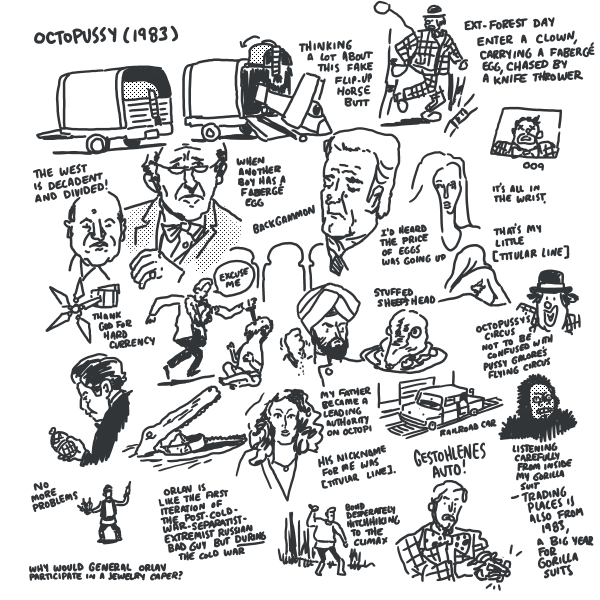 OCTOPUSSY (1983)
THINKING
A LOT ABOUT
THIS FAKE
FLIP-UP
HORSE
BUTT
EXT-FOREST DAY
ENTER A CLOWN,
CARRYING A FABERGÉ
EGG, CHASED BY
A KNIFE THROWER
009
THE WEST
IS DECADENT
AND DIVIDED!
WHEN
ANOTHER
BOY HAS A
FABERGÉ
EGG
BACKGAMMON
I'D HEARD
THE PRICE
OF EGGS
WAS GOING UP
IT'S ALL IN
THE WRIST.
THAT'S MY
LITTLE
[TITULAR LINE]
EXCUSE
ME
THANK
GOD FOR
HARD
CURRENCY
STUFFED
SHEEPSHEAD
OCTOPUSSY'S
CIRCUS
NOT TO BE
CONFUSED WITH
PUSSY GALORE'S
FLYING CIRCUS
MY FATHER
BECAME A
LEADING
AUTHORITY
ON OCTOPI
HIS NICKNAME
FOR ME WAS
[TITULAR LINE].
RAILROAD CAR
GESTOHLENES
AUTO!
LISTENING
CAREFULLY
FROM INSIDE
MY GORILLA
SUIT
- TRADING
PLACES IS
ALSO FROM
1983,
A BIG YEAR
FOR
GORILLA
SUITS
NO
MORE
PROBLEMS
ORLAV IS
LIKE THE FIRST
ITERATION OF
THE POST-COLD-
WAR-SEPARATIST-
EXTREMIST RUSSIAN
BAD GUY BUT DURING
THE COLD WAR
BOND
DESPERATELY
HITCHHIKING
TO THE
CLIMAX
WHY WOULD GENERAL ORLAV
PARTICIPATE IN A JEWELRY CAPER?